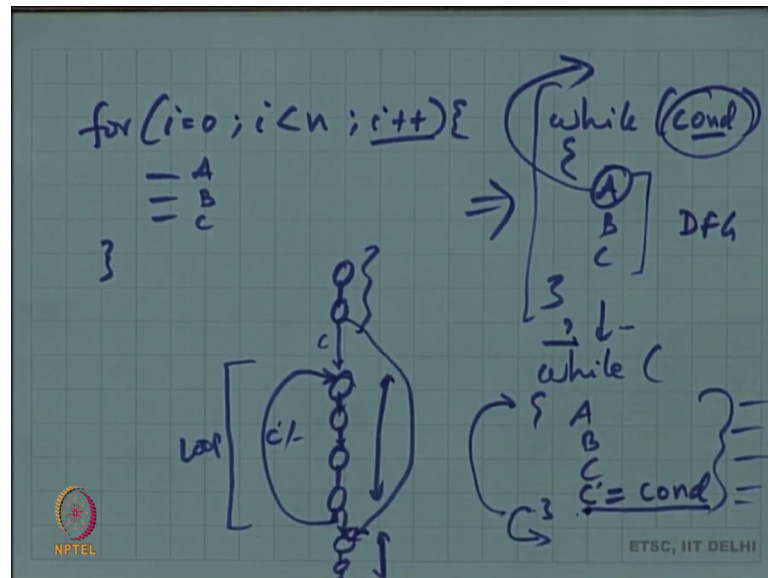 for (i=0 ; i<n ; i++) {
A
B
C
}
⇒
while (cond)
{
A
B
C
DFG
}
while (
{ A
B
C
C' = cond
}
C
LOOP
NPTEL
ETSC, IIT DELHI